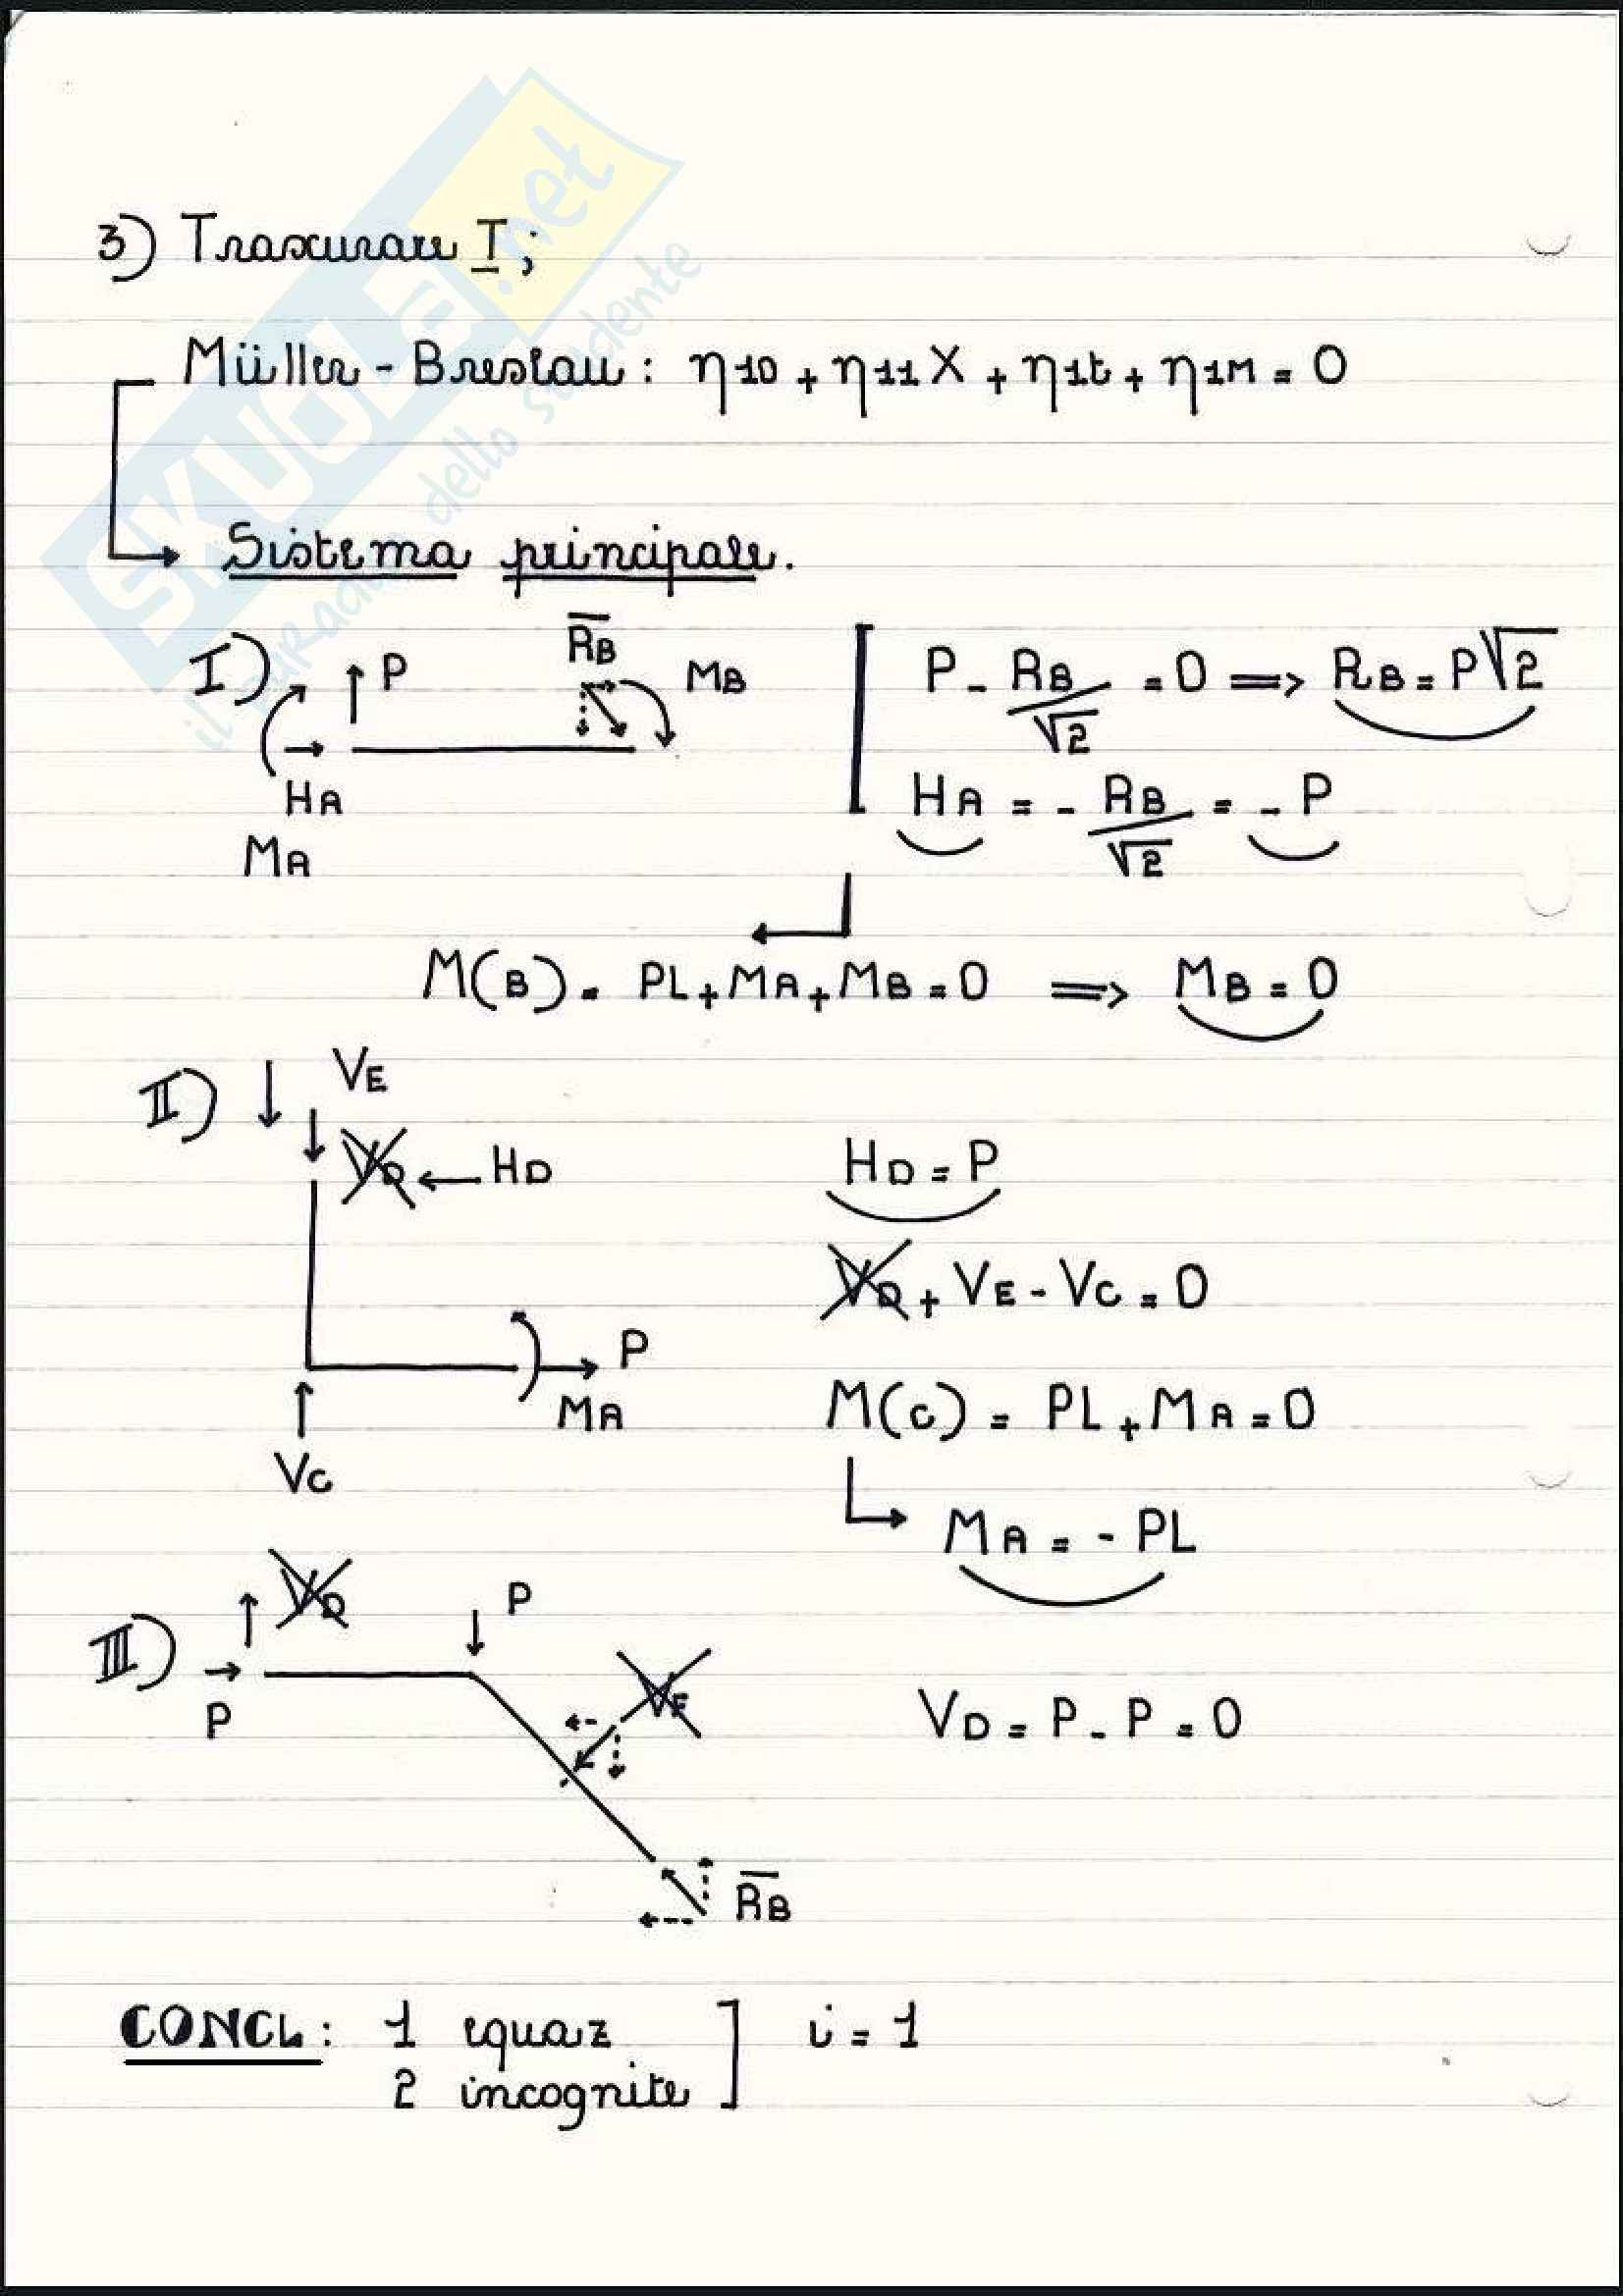 3) Trascurare T;
Müller - Breslau : η10 + η11 X + η1t + η1M = 0
Sistema principale.
I) P RB MB
HA
MA
P - RB/√2 = 0 => RB = P√2
HA = - RB/√2 = - P
M(B) = PL + MA + MB = 0 => MB = 0
II) VE
VD HD
P
MA
VC
HD = P
VD + VE - VC = 0
M(C) = PL + MA = 0
MA = - PL
III) VD P
P
VE
RB
VD = P - P = 0
CONCL : 1 equaz
2 incognite
i = 1
SKUOLA.net
il paradiso dello studente